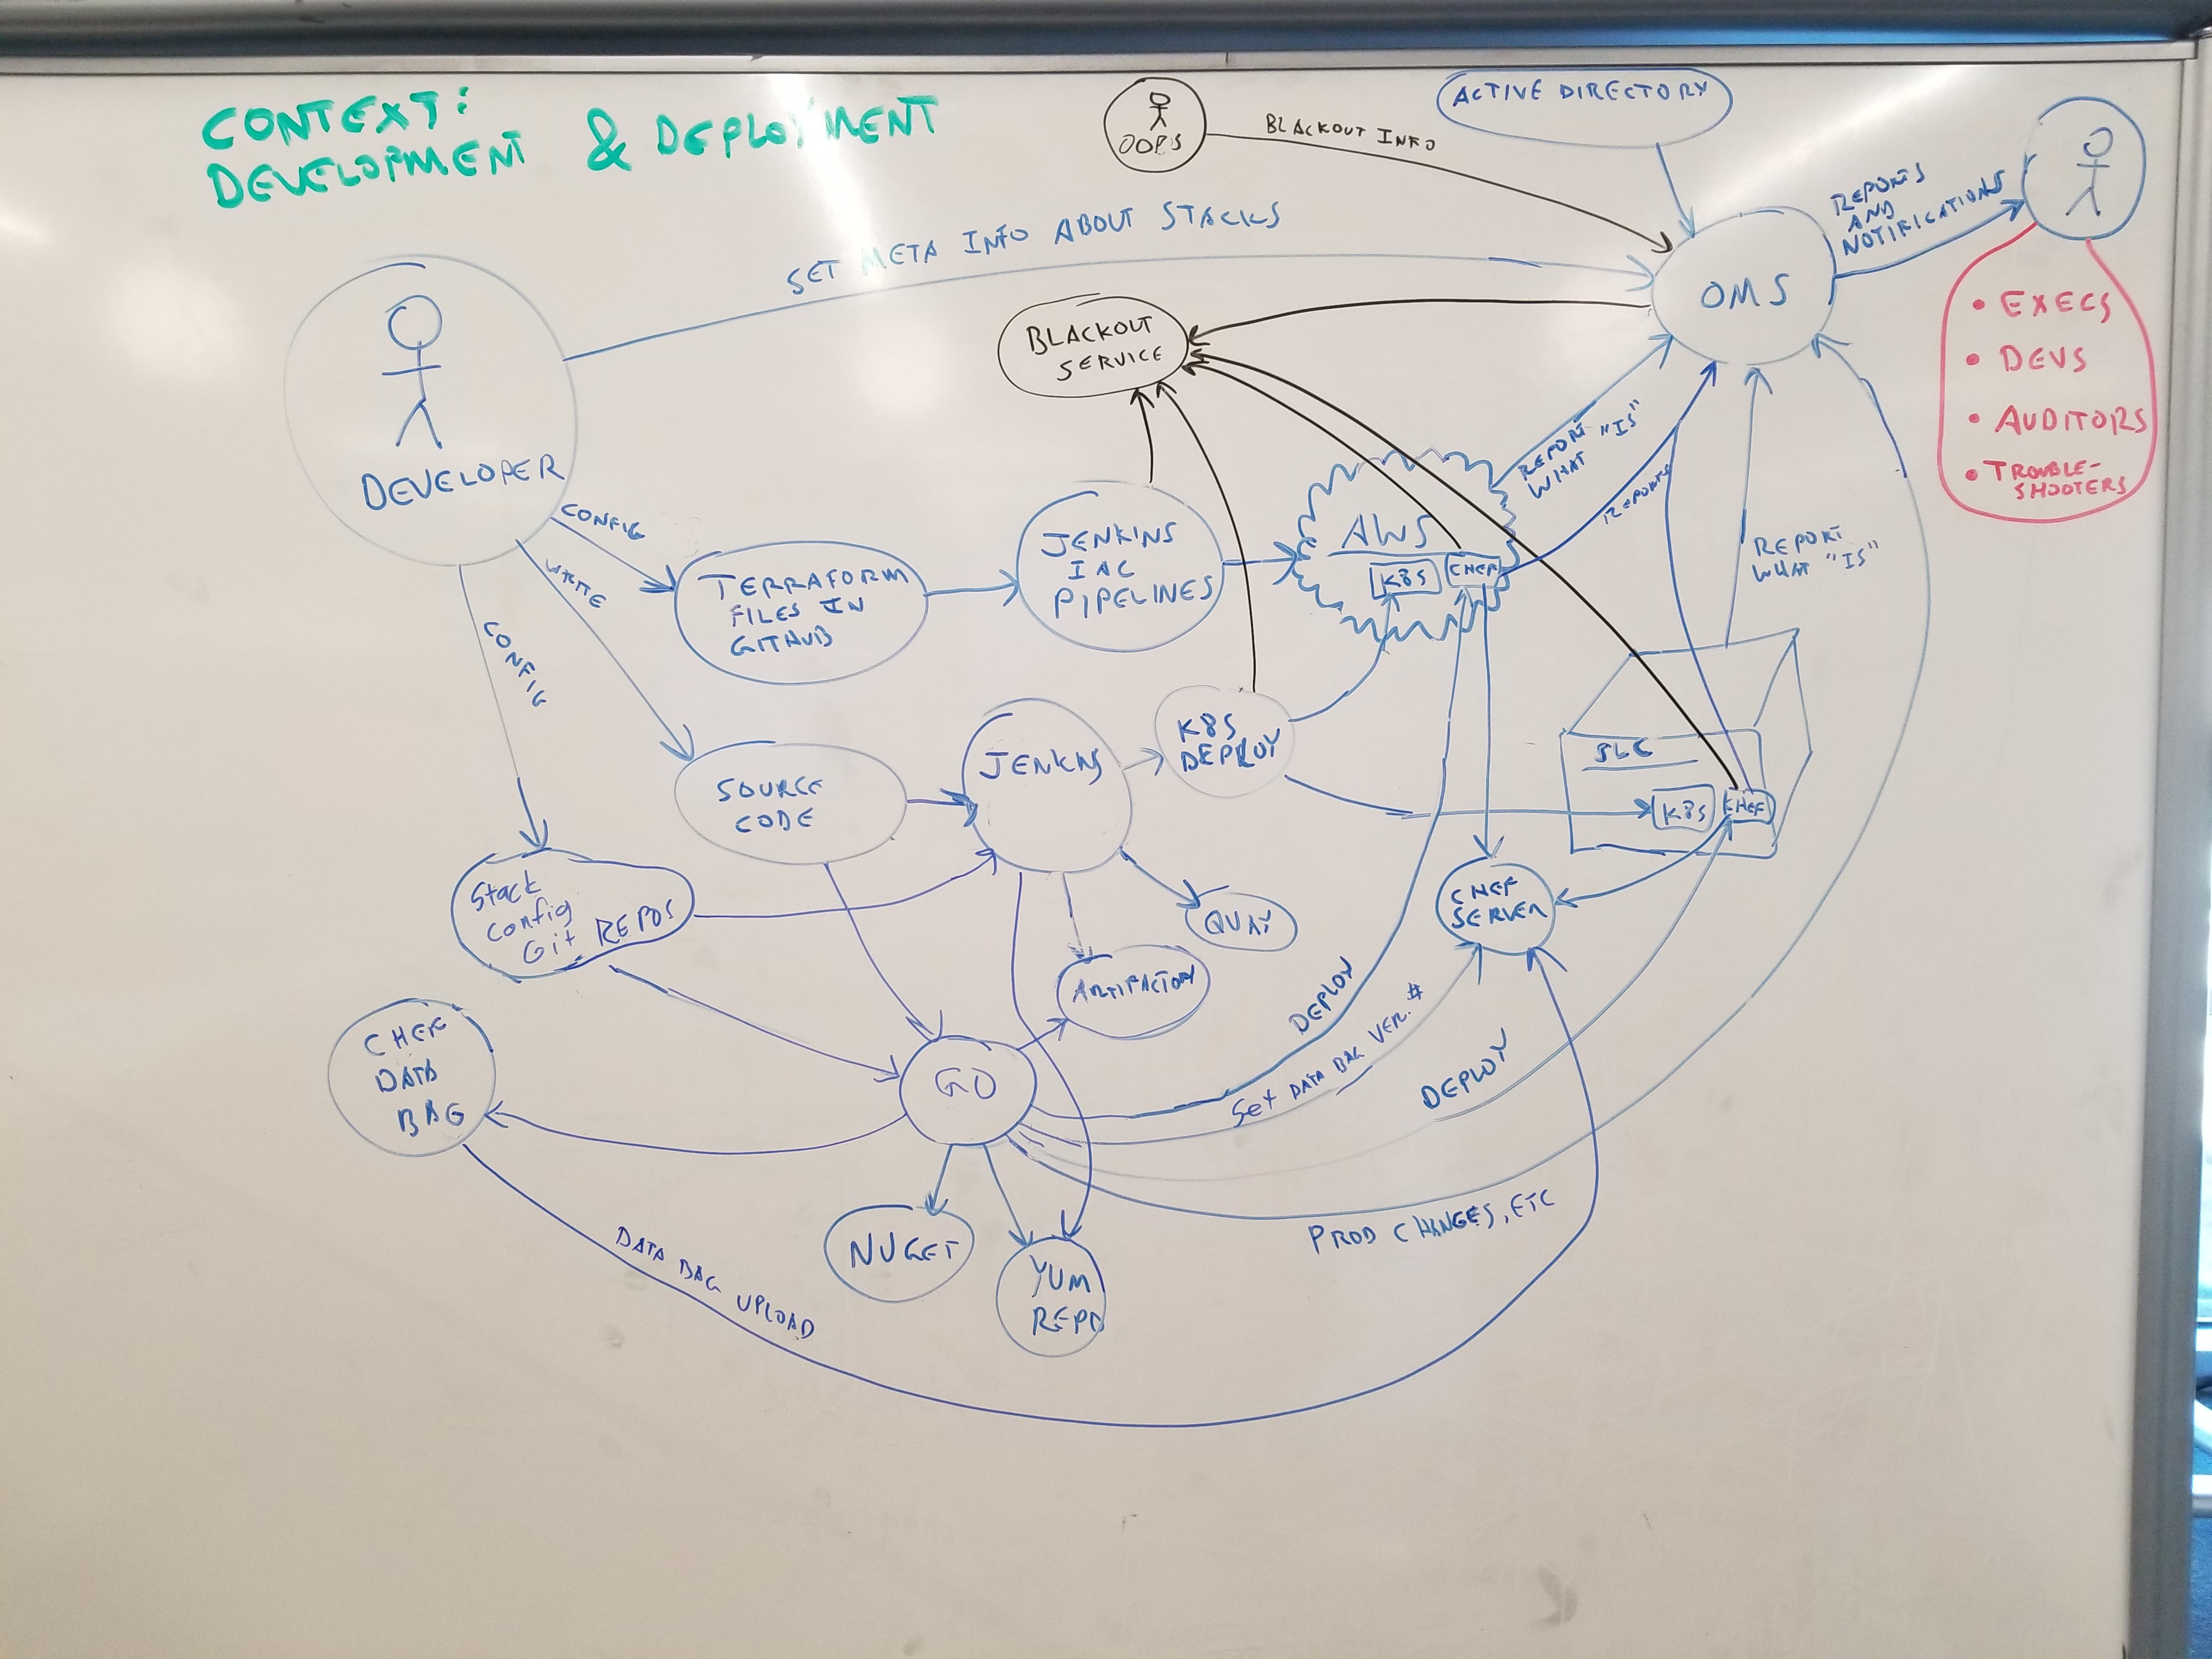 CONTEXT:
DEVELOPMENT & DEPLOYMENT
OOPS
BLACKOUT INFO
ACTIVE DIRECTORY
REPORTS
AND
NOTIFICATIONS
SET META INFO ABOUT STACKS
OMS
• EXECS
• DEVS
• AUDITORS
• TROUBLE-
SHOOTERS
BLACKOUT
SERVICE
DEVELOPER
CONFIG
WRITE
CONFIG
TERRAFORM
FILES IN
GITHUB
JENKINS
IAC
PIPELINES
AWS
K8S
CHEF
REPORT "IS"
WHAT
REPORTS
REPORT
WHAT "IS"
SOURCE
CODE
JENKINS
K8S
DEPLOY
SLC
K8S
CHEF
Stack
Config
Git REPOS
QUAY
ARTIFACTORY
CHEF
SERVER
CHEF
DATA
BAG
GO
DEPLOY
Set DATA BAG VER. #
DEPLOY
NUGET
YUM
REPO
PROD CHANGES, ETC
DATA BAG UPLOAD